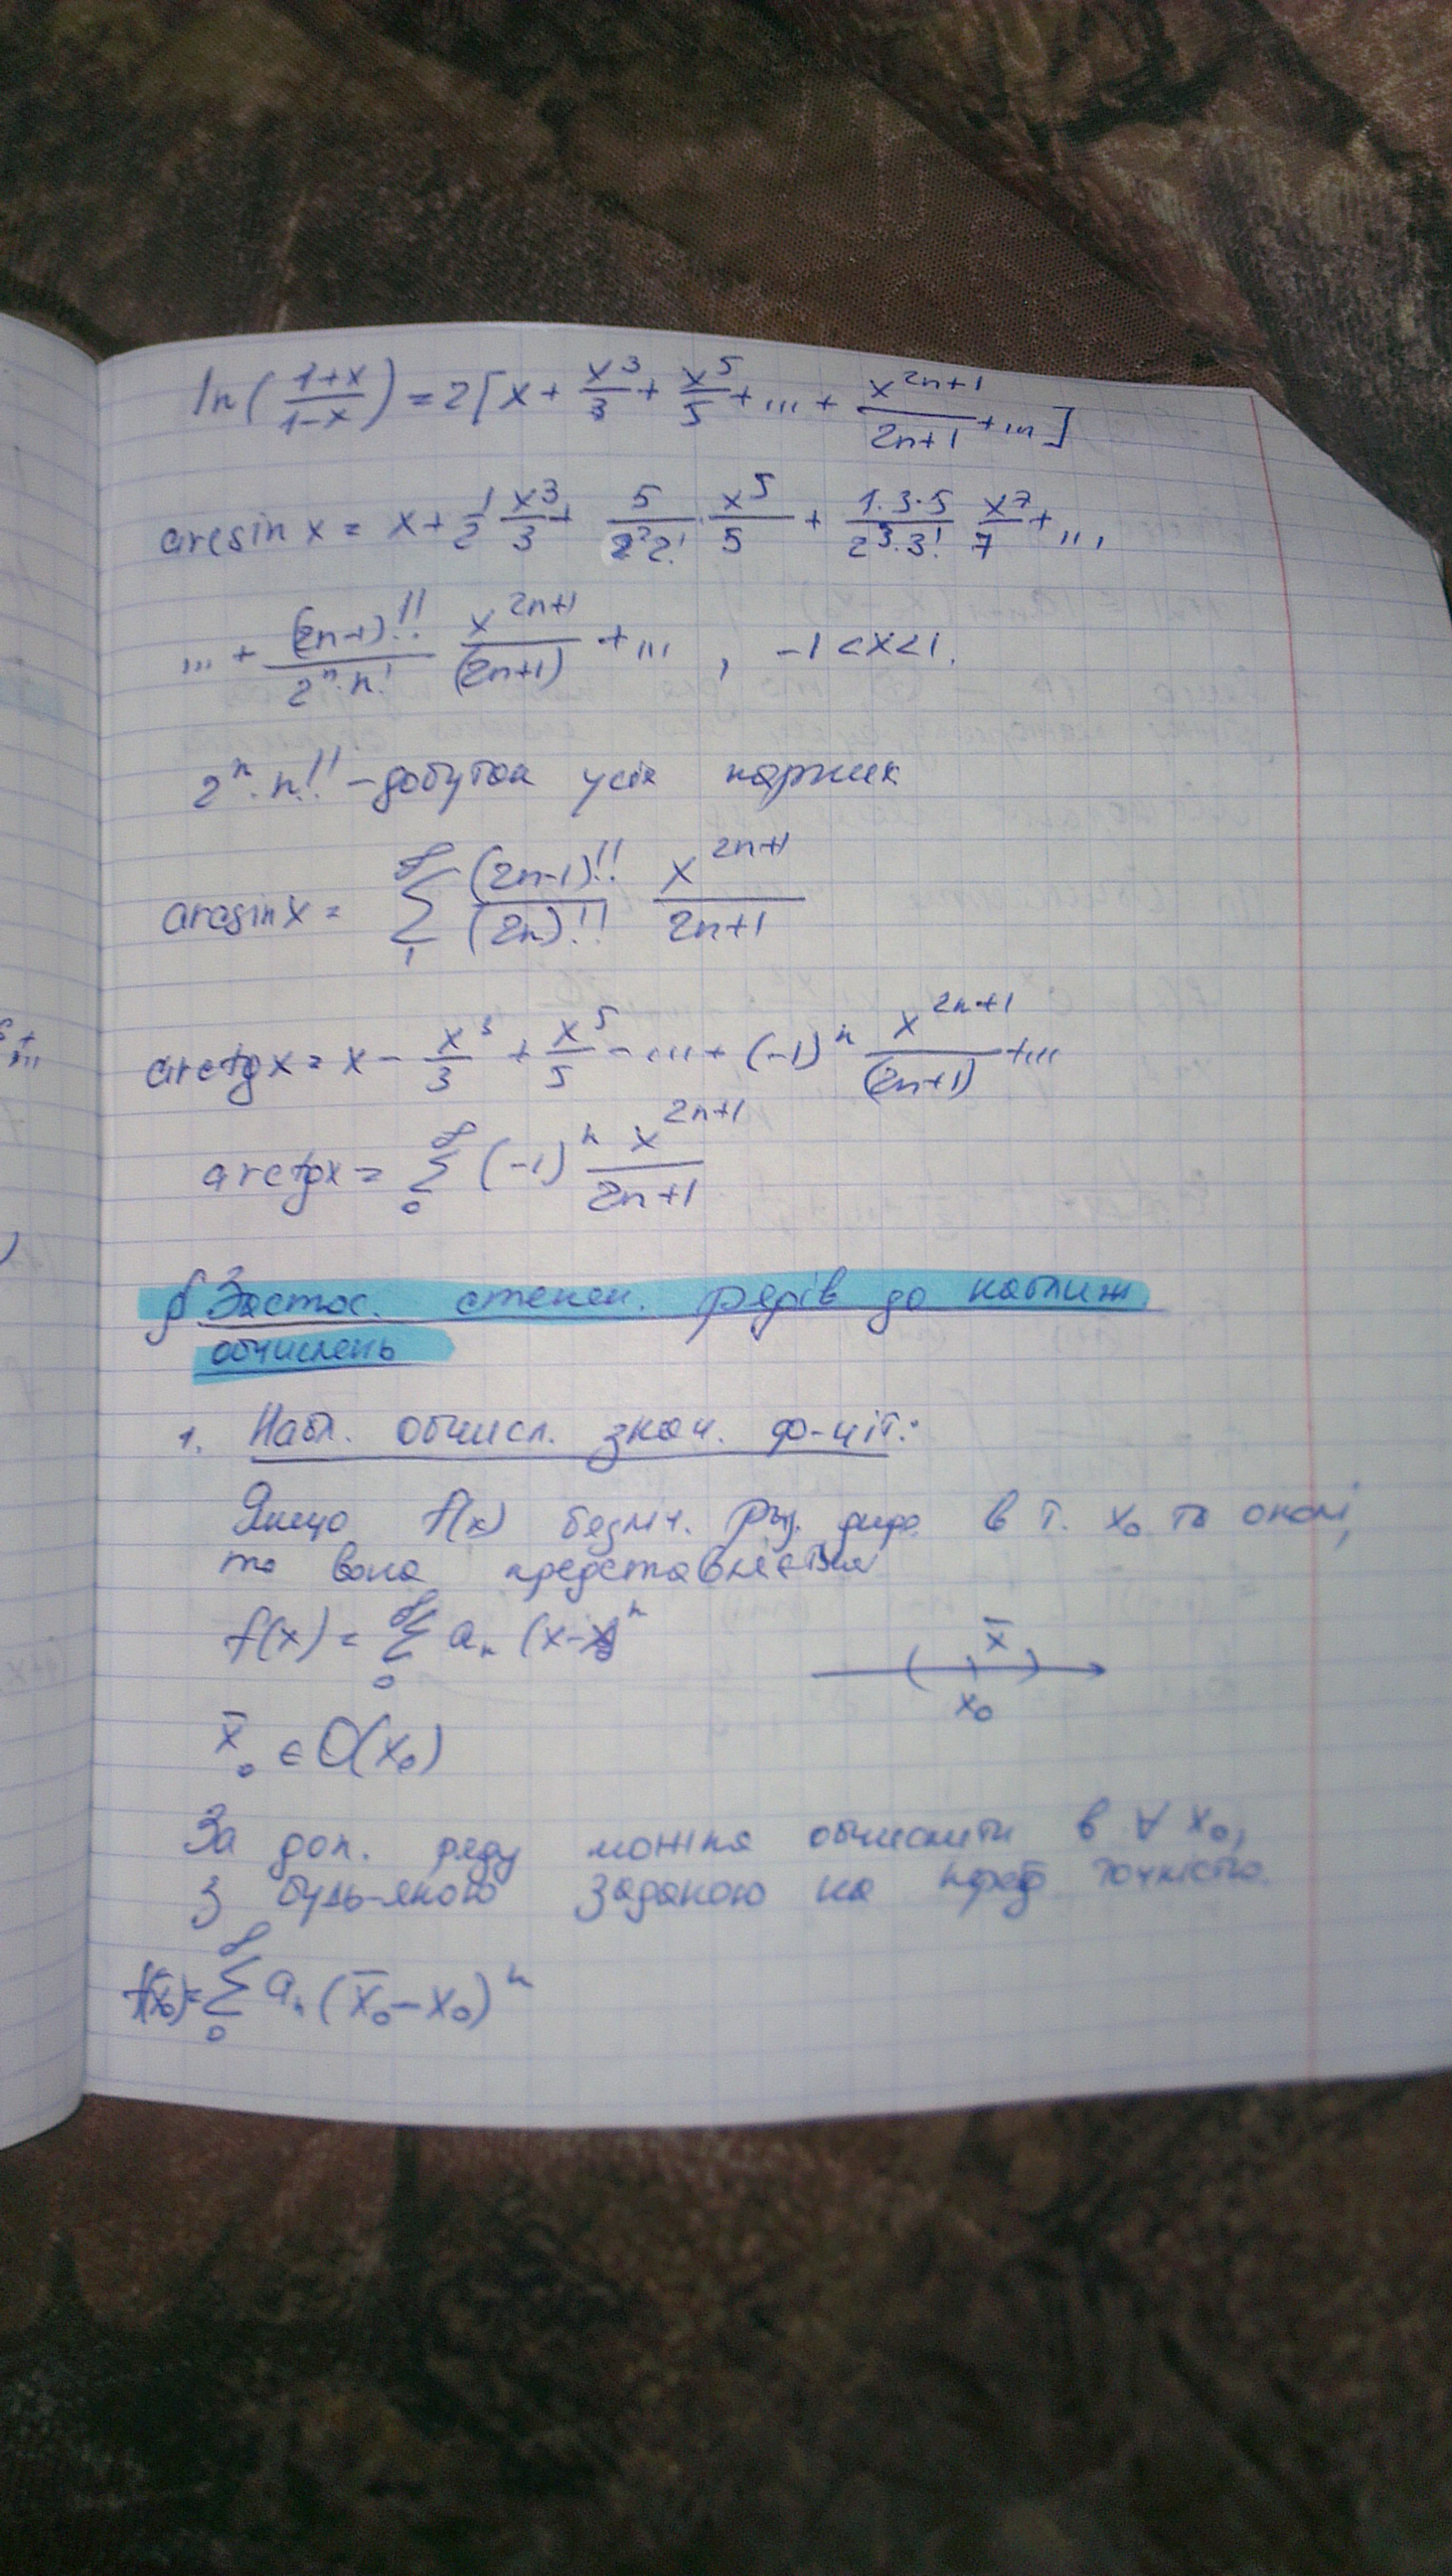 ln(\frac{1+x}{1-x}) = 2[x + \frac{x^3}{3} + \frac{x^5}{5} + ... + \frac{x^{2n+1}}{2n+1} + ...]
arcsin x = x + \frac{1}{2} \frac{x^3}{3} + \frac{5}{2^2 2!} · \frac{x^5}{5} + \frac{1·3·5}{2^3·3!} \frac{x^7}{7} + ...
... + \frac{(2n-1)!!}{2^n·n!} \frac{x^{2n+1}}{(2n+1)} + ... , -1<x<1.
2^n · n!! – добуток усіх парних
arcsin x = \sum_1^∞ \frac{(2n-1)!!}{(2n)!!} \frac{x^{2n+1}}{2n+1}
arctg x = x - \frac{x^3}{3} + \frac{x^5}{5} - ... + (-1)^n \frac{x^{2n+1}}{(2n+1)} + ...
arctg x = \sum_0^∞ (-1)^n \frac{x^{2n+1}}{2n+1}
§ Застос. степен. рядів до наближ.
обчислень
1. Набл. обчисл. знач. ф-ції:
Якщо f(x) безліч. раз. диф. в т. x_0 та околі,
то вона представляється
f(x) = \sum_0^∞ a_n (x-x_0)^n
x̄
x_0
x̄_0 ∈ O(x_0)
За доп. ряду можна обчислити в ∀ x_0,
з будь-якою заданою на перед точністю.
f(x̄_0) = \sum_0^∞ a_n (x̄_0 - x_0)^n